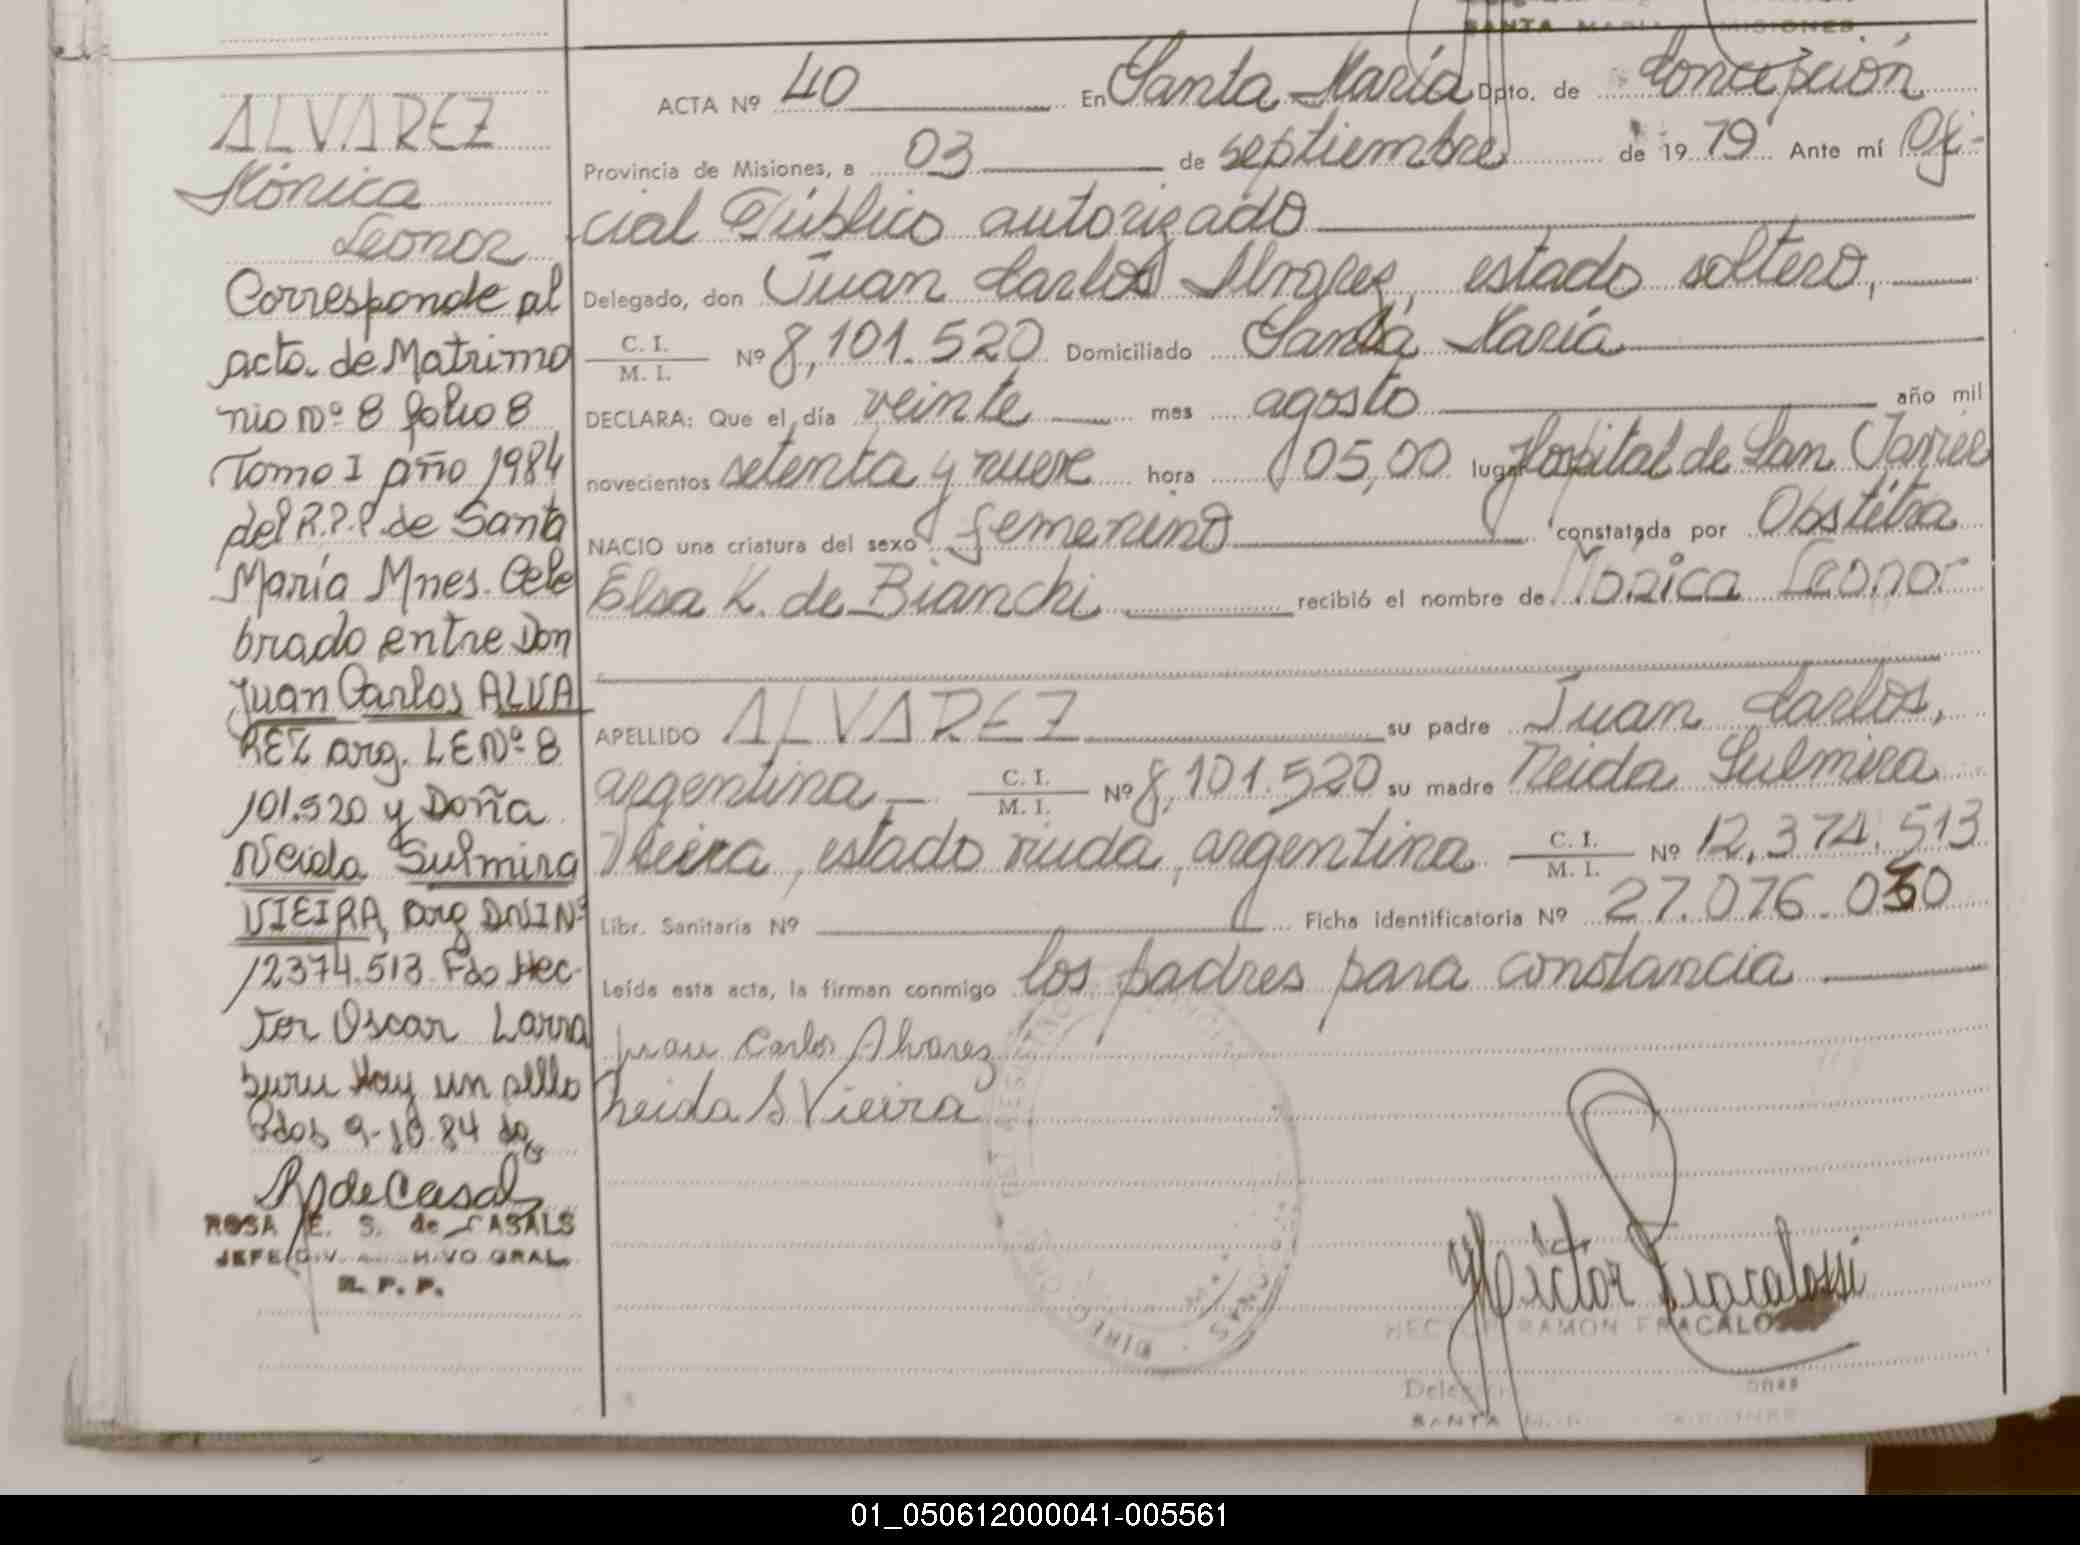 SANTA MARIA MISIONES.
ALVAREZ
Mónica
Leonor
Corresponde al
acta de Matrimo
nio Nº 8 folio 8
Tomo I año 1984
del R.P.P. de Santa
María Mnes. Cele
brado entre Don
Juan Carlos ALVA
REZ arg. LE Nº 8
101.520 y Doña
Neida Sulmira
VIEIRA, arg DNI Nº
12374.513. Fdo Hec-
tor Oscar Larra
buru Hay un sello
Pdas 9-10-84
R de Casals
ROSA E. S. de CASALS
JEFE DIV. ARCHIVO GRAL.
R. P. P.
ACTA Nº 40 En Santa María Dpto. de Concepción
Provincia de Misiones, a 03 de septiembre de 1979 Ante mí Ofi-
cial Público autorizado
Delegado, don Juan Carlos Alvarez, estado soltero,
C. I.
M. I. Nº 8,101.520 Domiciliado Santa María
DECLARA: Que el día veinte mes agosto año mil
novecientos setenta y nueve hora 05,00 lugar Hospital de San Javier
NACIO una criatura del sexo femenino constatada por Obstétra
Elsa K. de Bianchi recibió el nombre de Mónica Leonor
APELLIDO ALVAREZ su padre Juan Carlos,
argentina C. I.
M. I. Nº 8,101.520 su madre Neida Sulmira
Vieira, estado viuda, argentina C. I.
M. I. Nº 12.374.513
Libr. Sanitaria Nº Ficha identificatoria Nº 27.076.030
Leída esta acta, la firman conmigo los padres para constancia
Juan Carlos Alvarez
Neida S Vieira
Héctor Fracalossi
HECTOR RAMON FRACALOSSI
SANTA
01_050612000041-005561